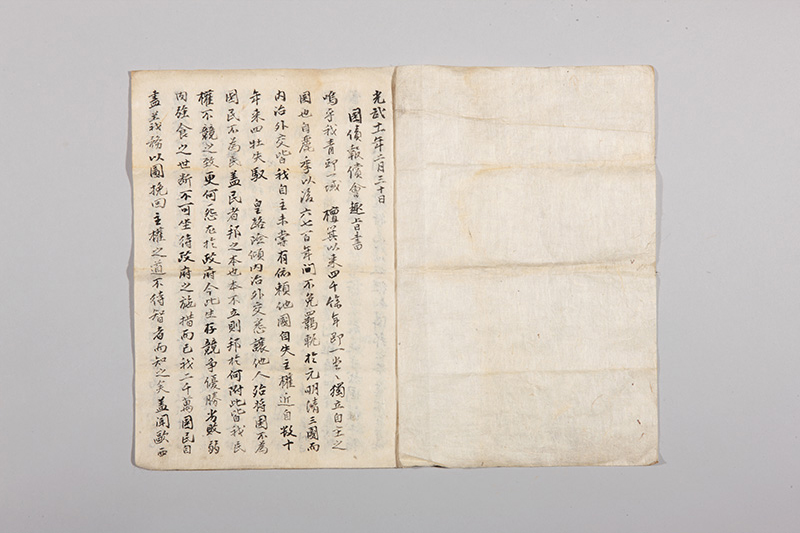 光武十一年二月三十日
國債報償會趣旨書
嗚乎我靑邱一域 檀箕以來四千餘年卽一堂々獨立自主之
國也自麗季以後六七百年間不免羈軛於元明淸三國而
內治外交皆我自主未嘗有依賴他國自失主權近自數十
年來四牡失馭 皇路淪傾內治外交悉讓他人殆將國不爲
國民不爲民盖民者邦之本也本不立則邦於何附此皆我民
權不競之致更何怨尤於政府今此生存競爭優勝劣敗弱
肉强食之世斷不可坐待政府之施措而已我二千萬國民自
盡其義務以圖挽回主權之道不待智者而知之矣盖聞歐西